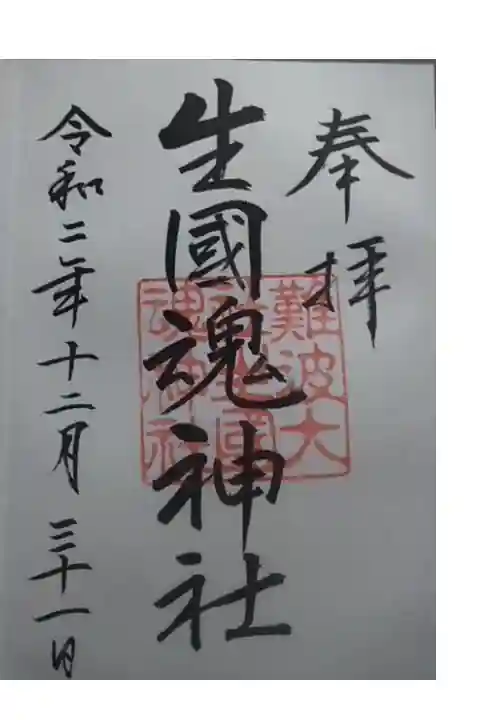 奉拝
生國魂神社
令和二年十二月三十一日
難波大
社生國
魂神社